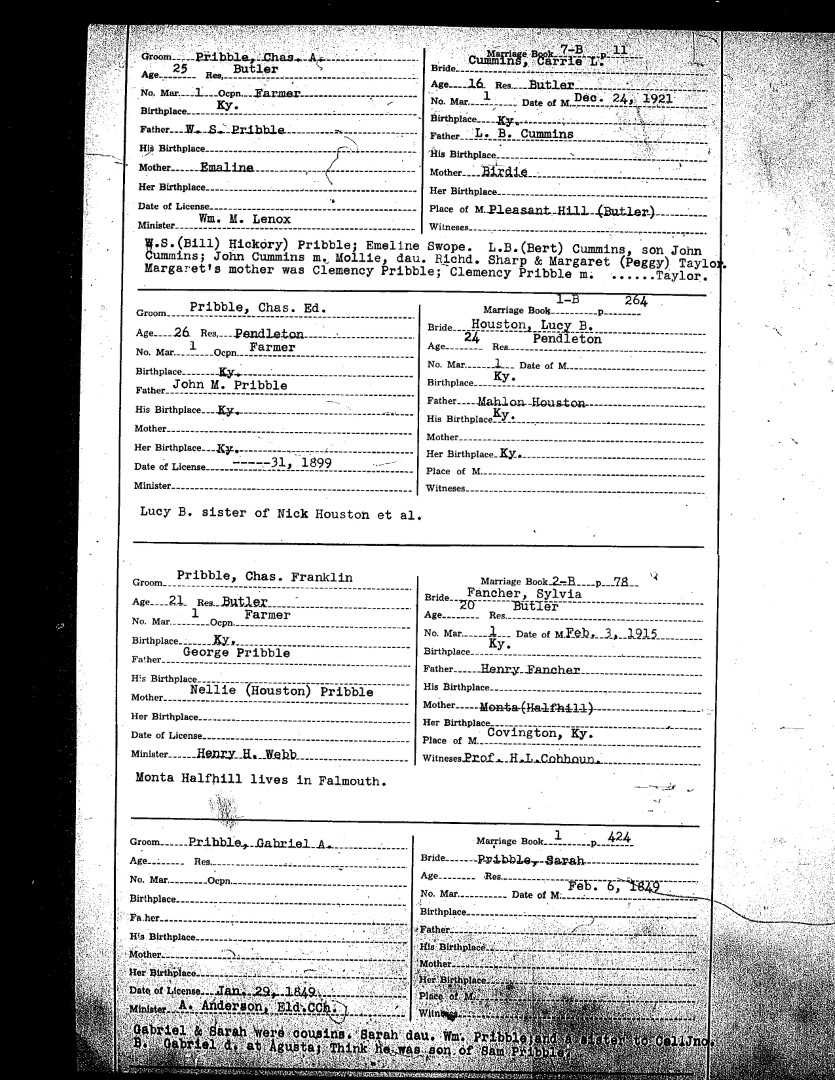 Groom Pribble, Chas. A.
Age 25 Res. Butler
No. Mar. 1 Ocpn. Farmer
Birthplace Ky.
Father W. S. Pribble
His Birthplace
Mother Emaline
Her Birthplace
Date of License
Minister Wm. M. Lenox
Marriage Book 7-B p. 11
Bride Cummins, Carrie L.
Age 16 Res. Butler
No. Mar. 1 Date of M. Dec. 24, 1921
Birthplace Ky.
Father L. B. Cummins
His Birthplace
Mother Birdie
Her Birthplace
Place of M. Pleasant Hill (Butler)
Witnesses
W.S.(Bill) Hickory) Pribble; Emeline Swope. L.B.(Bert) Cummins, son John
Cummins; John Cummins m. Mollie, dau. Richd. Sharp & Margaret (Peggy) Taylor.
Margaret's mother was Clemency Pribble; Clemency Pribble m. ......Taylor.
Groom Pribble, Chas. Ed.
Age 26 Res. Pendleton
No. Mar. 1 Ocpn. Farmer
Birthplace Ky.
Father John M. Pribble
His Birthplace Ky.
Mother
Her Birthplace Ky.
Date of License -----31, 1899
Minister
Marriage Book 1-B p. 264
Bride Houston, Lucy B.
Age 24 Res. Pendleton
No. Mar. 1 Date of M.
Birthplace Ky.
Father Mahlon Houston
His Birthplace Ky.
Mother
Her Birthplace Ky.
Place of M.
Witnesses
Lucy B. sister of Nick Houston et al.
Groom Pribble, Chas. Franklin
Age 21 Res. Butler
No. Mar. 1 Ocpn. Farmer
Birthplace Ky.
Father George Pribble
His Birthplace
Mother Nellie (Houston) Pribble
Her Birthplace
Date of License
Minister Henry H. Webb
Marriage Book 2-B p. 78
Bride Fancher, Sylvia
Age 20 Res. Butler
No. Mar. 1 Date of M. Feb. 3, 1915
Birthplace Ky.
Father Henry Fancher
His Birthplace
Mother Monta (Halfhill)
Her Birthplace
Place of M. Covington, Ky.
Witnesses Prof. H.L.Cobhoun.
Monta Halfhill lives in Falmouth.
Groom Pribble, Gabriel A.
Age Res.
No. Mar. Ocpn.
Birthplace
Father
His Birthplace
Mother
Her Birthplace
Date of License Jan. 29, 1849
Minister A. Anderson, Eld.CCh.
Marriage Book 1 p. 424
Bride Pribble, Sarah
Age Res.
No. Mar. Date of M. Feb. 6, 1849
Birthplace
Father
His Birthplace
Mother
Her Birthplace
Place of M.
Gabriel & Sarah were cousins. Sarah dau. Wm. Pribble;and a sister to
B. Gabriel d. at Agusta; Think he was son of Sam Pribble.